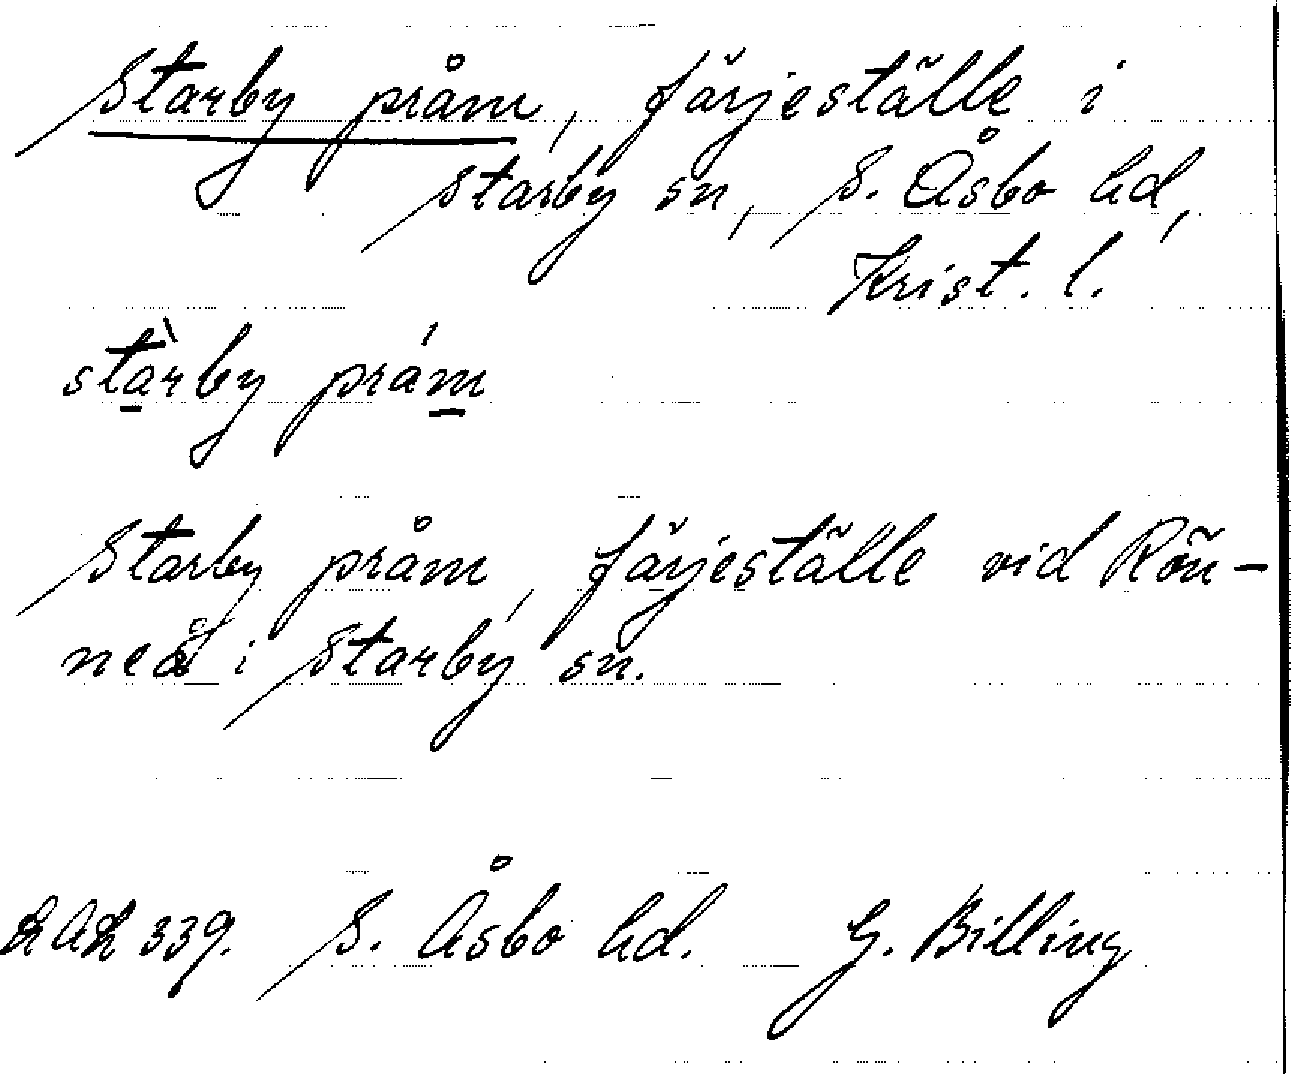 Starby pråm, färjeställe i
Starby sn, S. Åsbo hd,
Krist. l.
stàrby prám
Starby pråm, färjeställe vid Rön-
neå i Starby sn.
339. S. Åsbo hd. G. Billing